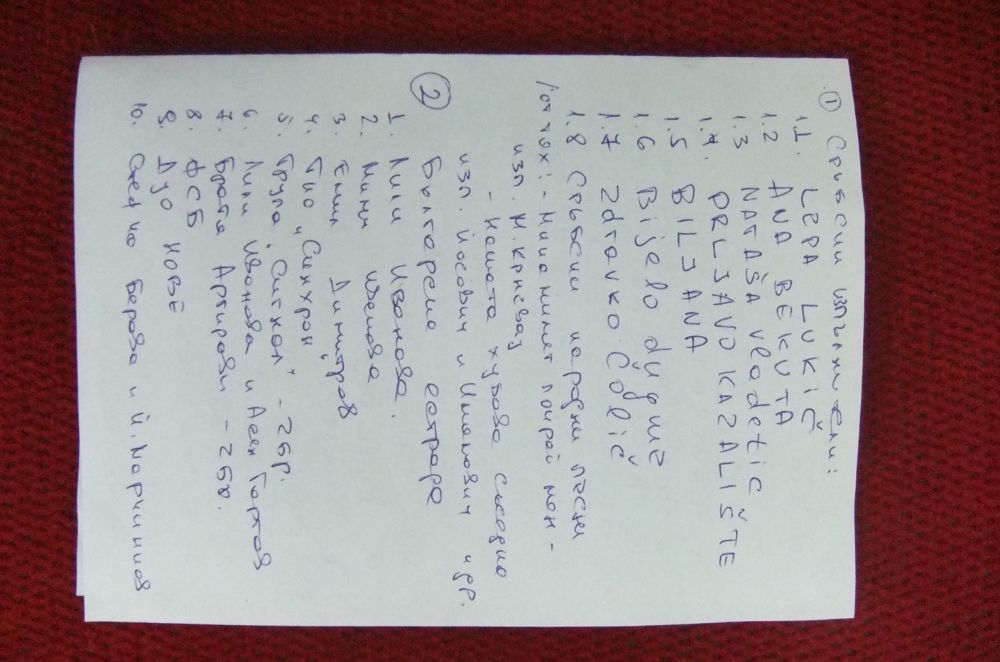 ① Сръбски изпълнители:
1.1. LEPA LUKIČ
1.2 ANA BEKUTA
1.3 NATAŠA vladetic
1.4. PRLJAVO KAZALIŠTE
1.5 BILJANA
1.6 Bijelo dygme
1.7 Zdravko Čolič
1.8 Сръбски народни песни
/от тях: - Мило нимнет покрай мен -
изп. М. Кръневаз
- Нашата хубава съседно
изп. Йосович и Иманович и др.
② Българска естрада
1. Лили Иванова.
2. Мими Иванова
3. Емил Димитров
4. Трио "Синхрон"
5. Група "Сигнал" - 2бр.
6. Лили Иванова и Асен Гаргов
7. Братя Аргирови - 2бр.
8. ФСБ
9. Дуо НОВЕ
10. Стефка Берова и Й. Марчинков